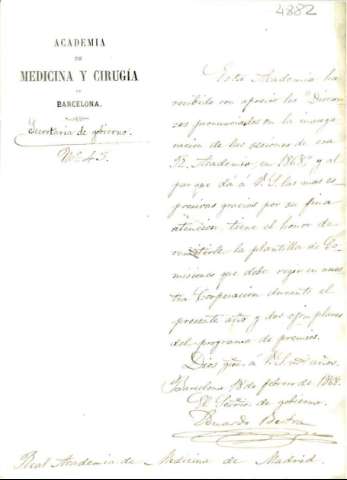 4882
ACADEMIA
DE
MEDICINA Y CIRUGÍA
DE
BARCELONA.
Secretaría de gobierno.
Nº 45.
Esta Academia ha
recibido con aprecio los "Discur
sos pronunciados en la inaugu
racion de las sesiones de esa
R. Academia en 1868", y al
par que dá á V.S. las mas es
presivas gracias por su fina
atencion, tiene el honor de
remitirle la plantilla de Co
misiones que debe regir en nues
tra Corporacion durante el
presente año y dos ejemplares
del programa de premios.
Dios gue. á V.S. ms. años.
Barcelona 18 de febrero de 1868.
El Secrio. de gobierno.
Eduardo Bertran
Real Academia de Medicina de Madrid.